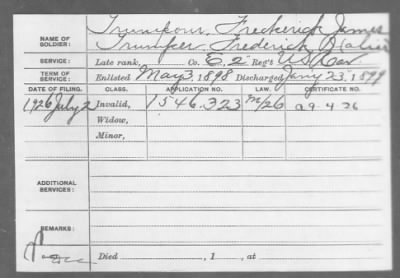 Trumpour, Frederick James
NAME OF SOLDIER:
Trumper Frederick
SERVICE: Late rank, Co. E. 2 Reg't US Cav
TERM OF SERVICE: Enlisted May 3, 1898 Discharged Jany 23, 1899
DATE OF FILING. CLASS. APPLICATION NO. LAW. CERTIFICATE NO.
1926 July 2 Invalid, 1546.323
Widow,
Minor,
ADDITIONAL SERVICES:
REMARKS:
Died , 1 , at